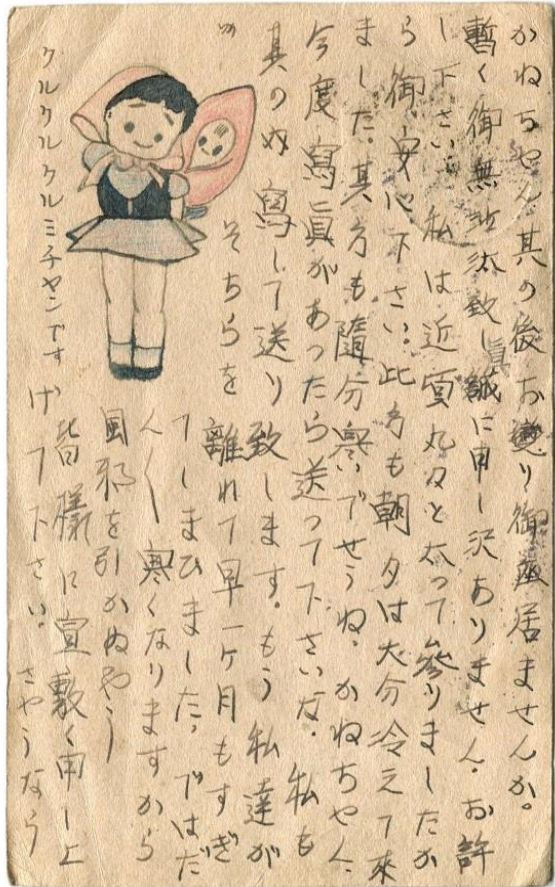 かねちゃん其の後お変り御座居ませんか。
暫く御無沙汰致し誠に申し沢ありません。お許
し下さい。私は近頃丸々と太って参りましたか
ら御安心下さい。此方も朝夕は大分冷えて来
ました。其方も随分寒いでせうね。かねちゃん、
今度寫眞があったら送って下さいな。私も
其の内寫して送り致します。もう私達が
そちらを離れて早一ヶ月もすぎ
てしまひました。ではだ
んく寒くなりますから
風邪を引かぬやう
皆様に宜敷く申し上
げて下さい。さやうなら
クルクルクルミチャンです